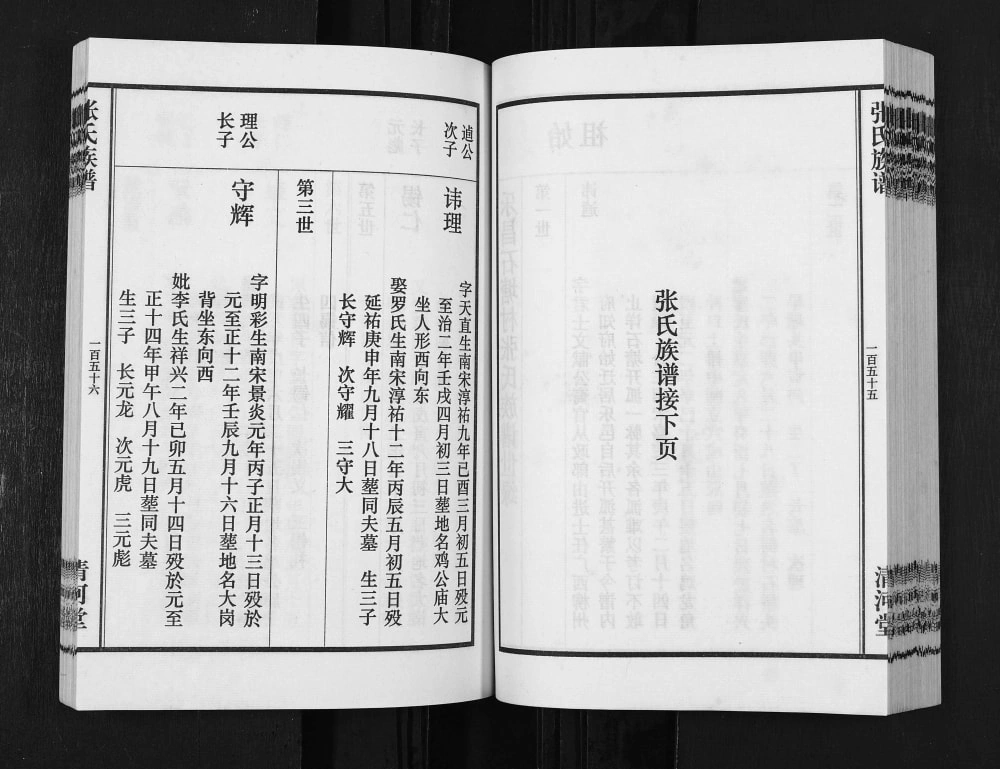 张氏族谱
一百五十五
清河堂
张氏族谱接下页
逌公
次子
讳理
字天直生南宋淳祐九年已酉三月初五日殁元
至治二年壬戌四月初三日塟地名鸡公庙大
坐人形西向东
娶罗氏生南宋淳祐十二年丙辰五月初五日殁
延祐庚申年九月十八日塟同夫墓　生三子
长守辉　次守耀　三守大
第三世
理公
长子
守辉
字明彩生南宋景炎元年丙子正月十三日殁於
元至正十二年壬辰九月十六日塟地名大岗
背坐东向西
妣李氏生祥兴二年己卯五月十四日殁於元至
正十四年甲午八月十九日塟同夫墓
生三子　长元龙　次元虎　三元彪
张氏族谱
一百五十六
清河堂